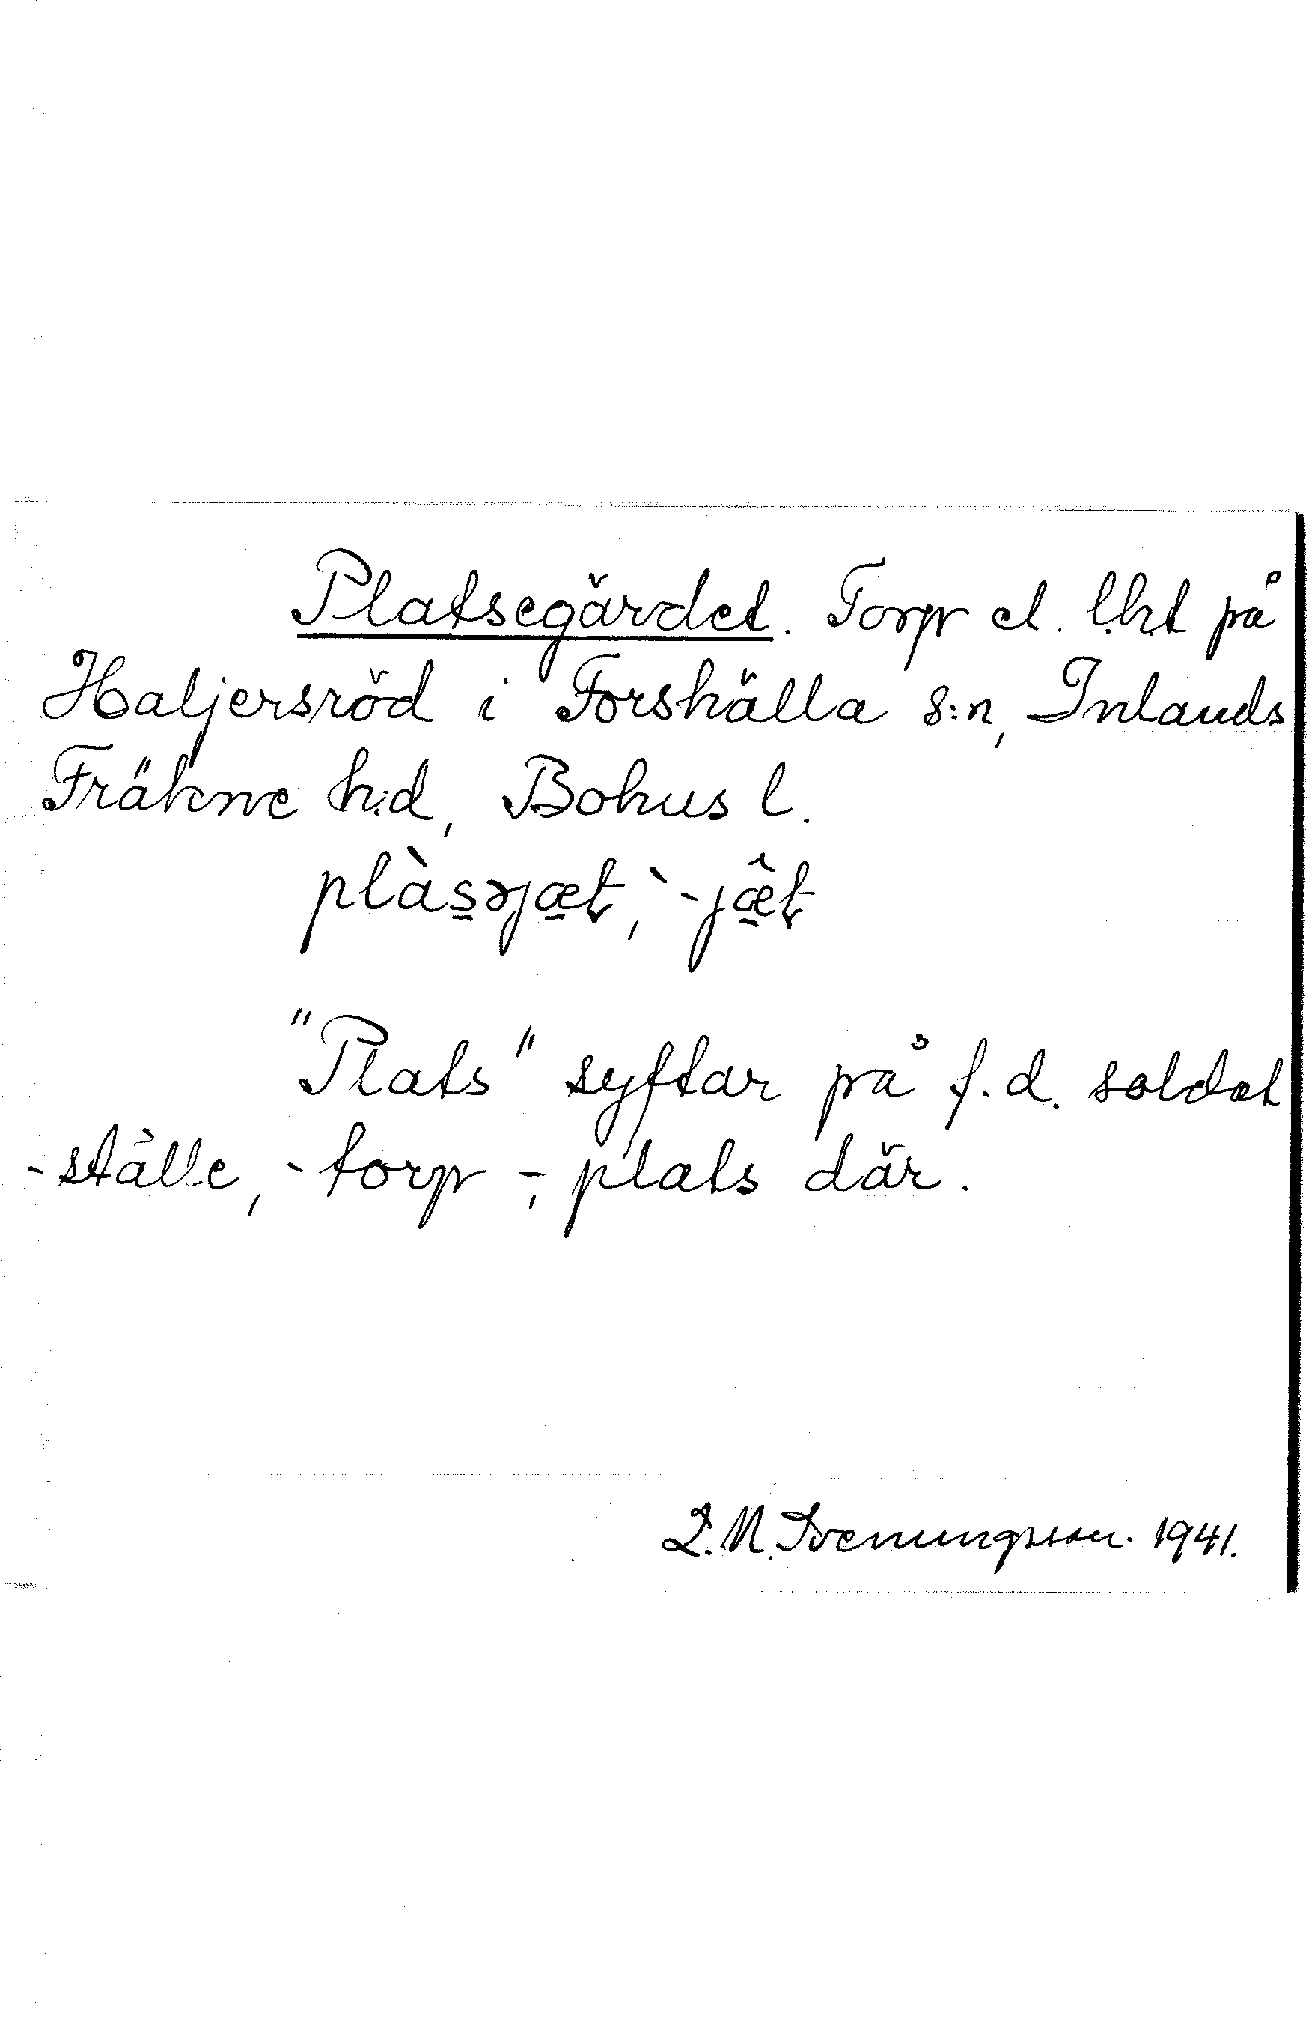 Platsegärdet. Torp el. lht på
Haljersröd i Forshälla s:n, Inlands
Fräkne h:d, Bohus l.
plàs̠əjæ̠t, `-jæ̠̂t
"Plats" syftar på f.d. soldat
-ställe, -torp -, plats där.
D.N. Svenungsson. 1941.